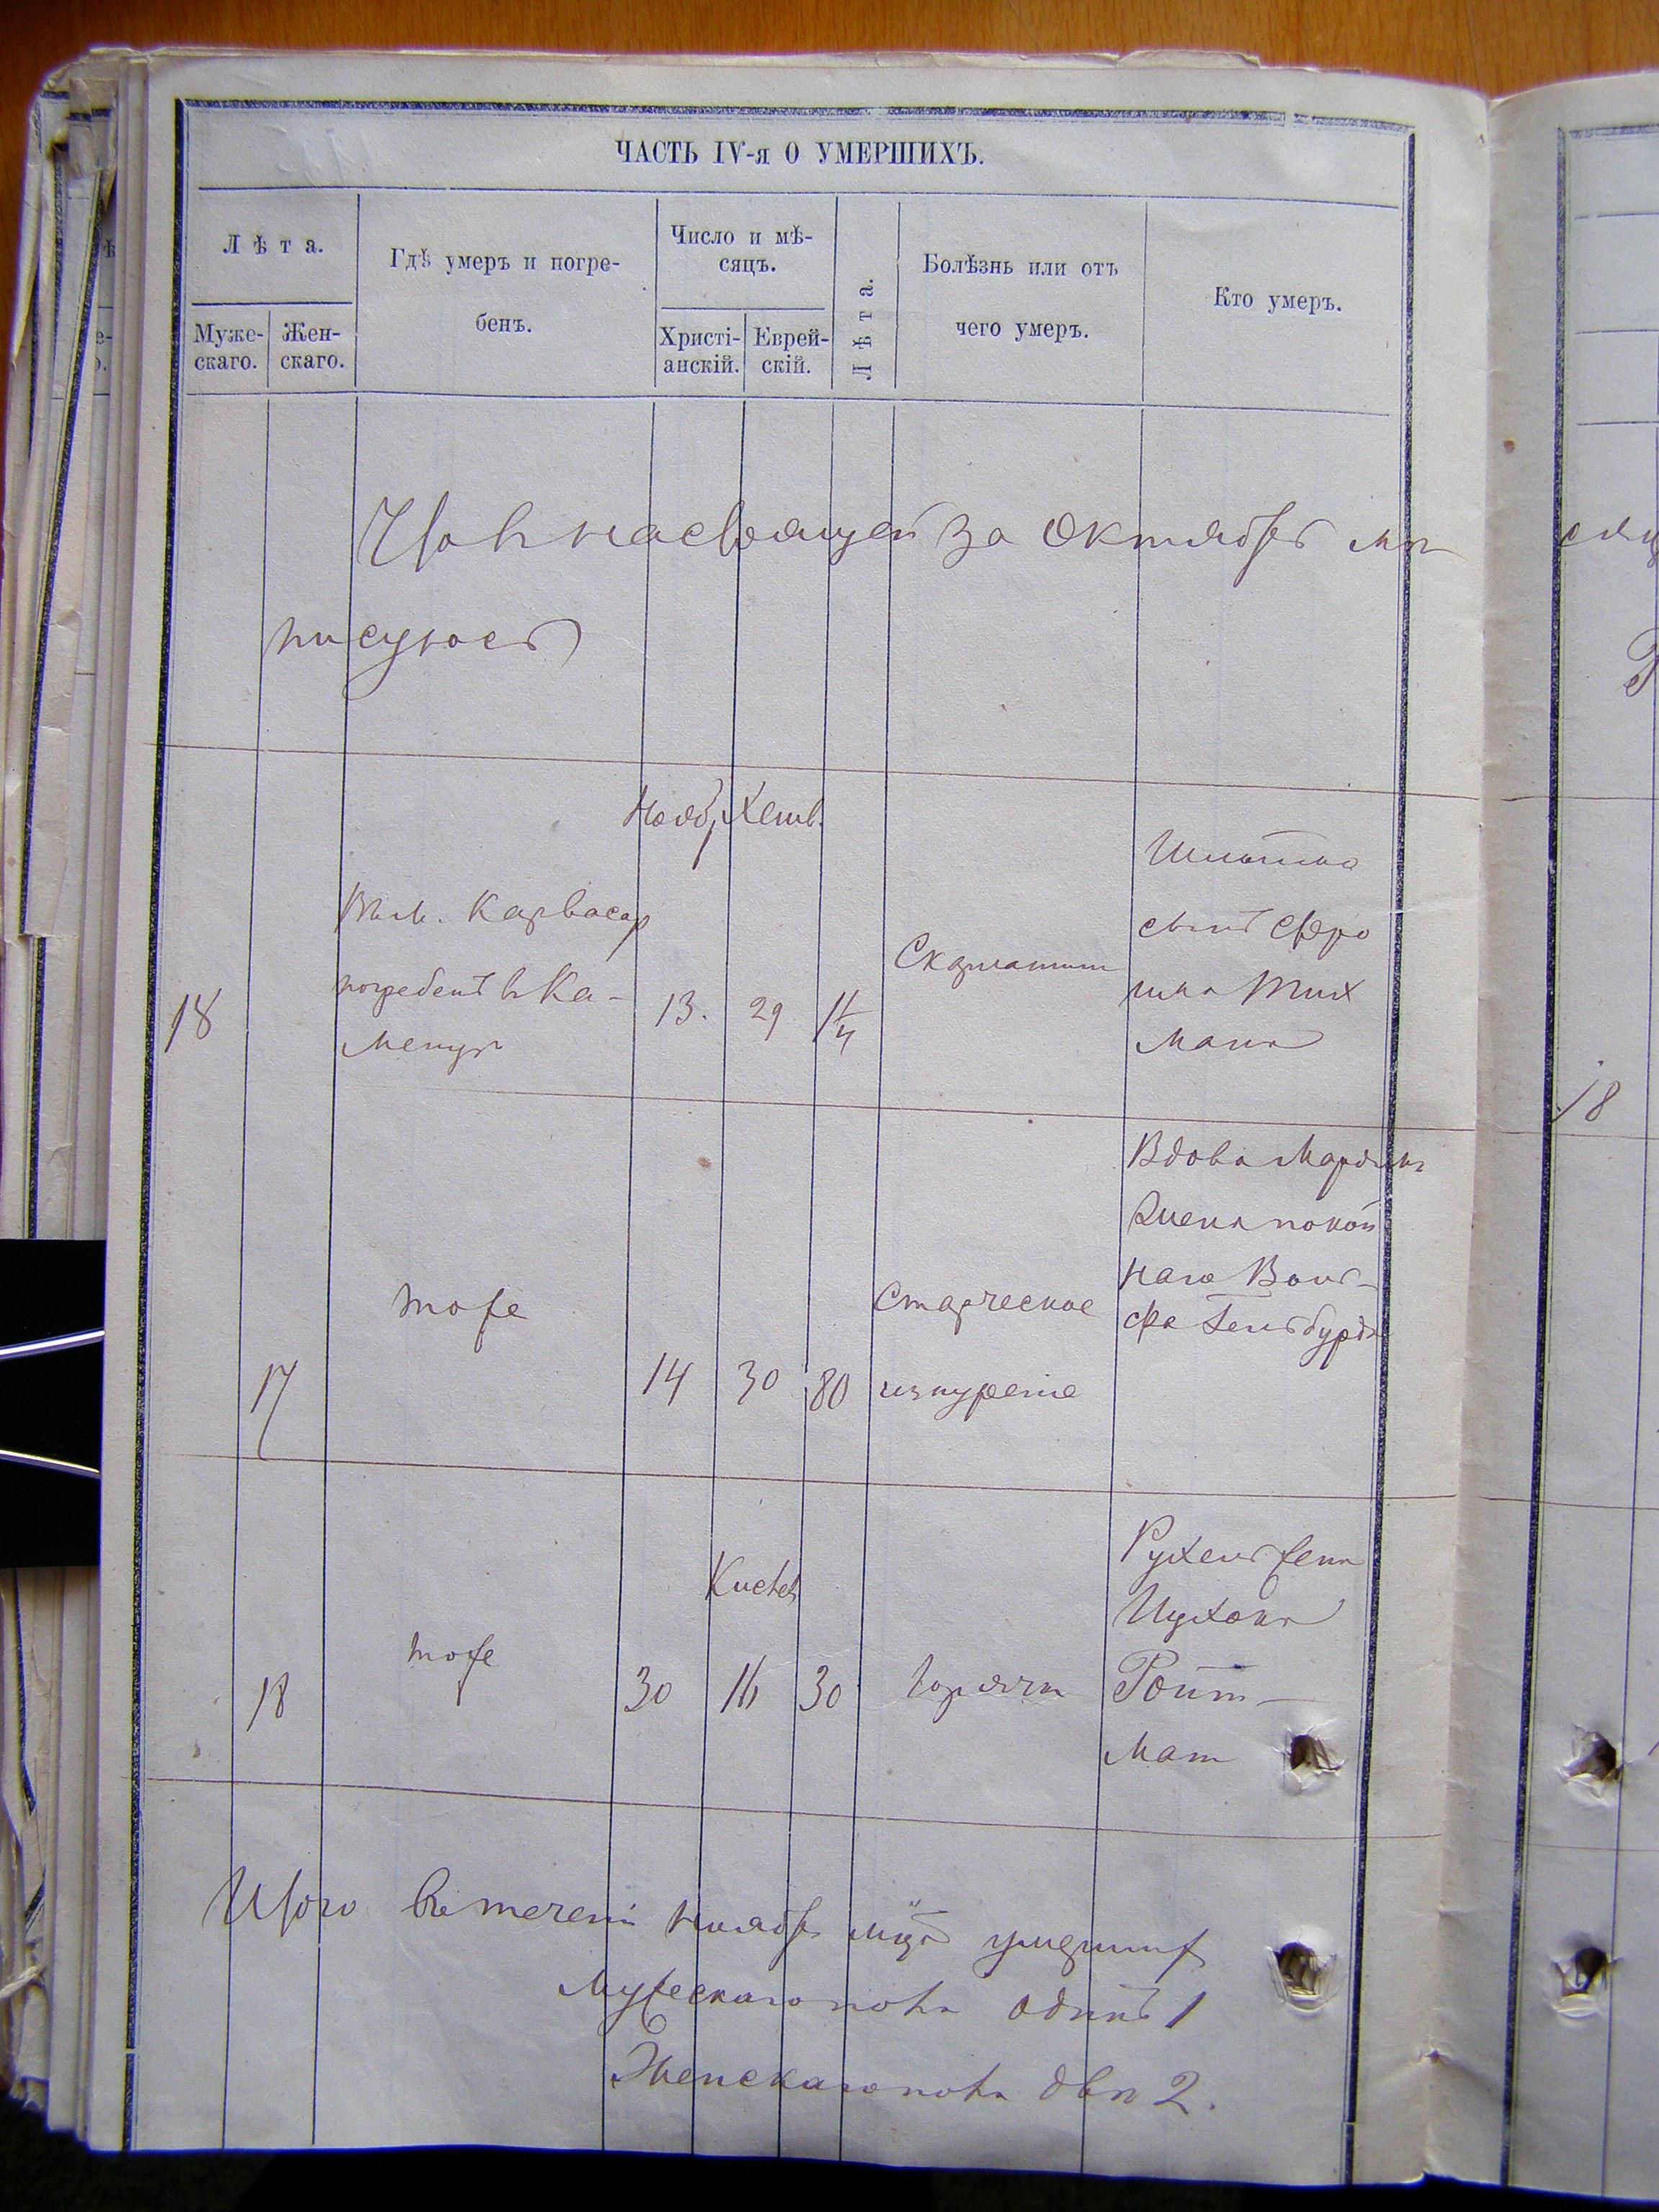 ЧАСТЬ IV-я О УМЕРШИХЪ.
Лѣта.
Муже-
скаго.
Жен-
скаго.
Гдѣ умеръ и погре-
бенъ.
Число и мѣ-
сяцъ.
Христі-
анскій.
Еврей-
скій.
Лѣта.
Болѣзнь или отъ
чего умеръ.
Кто умеръ.
что въ настоящей за Октябрь мѣ
Нояб. Хешв.
18
Карвасар
погребенъ въ Ка-
менцѣ
13.
29
1 1/4
Скарлатин
сынъ Фро
има Тих
мана
17
тоже
14
30
80
Старческое
изнуреніе
Вдова
жена покой
наго Воль-
фа Гельбурда
18
тоже
Кислев
30
16
30
Горячка
Рухель жена
Ицхока
Ройт-
ман
Итого въ теченіи Ноября мца умершихъ
Мужескаго пола одинъ 1
Женскаго пола двѣ 2.
18